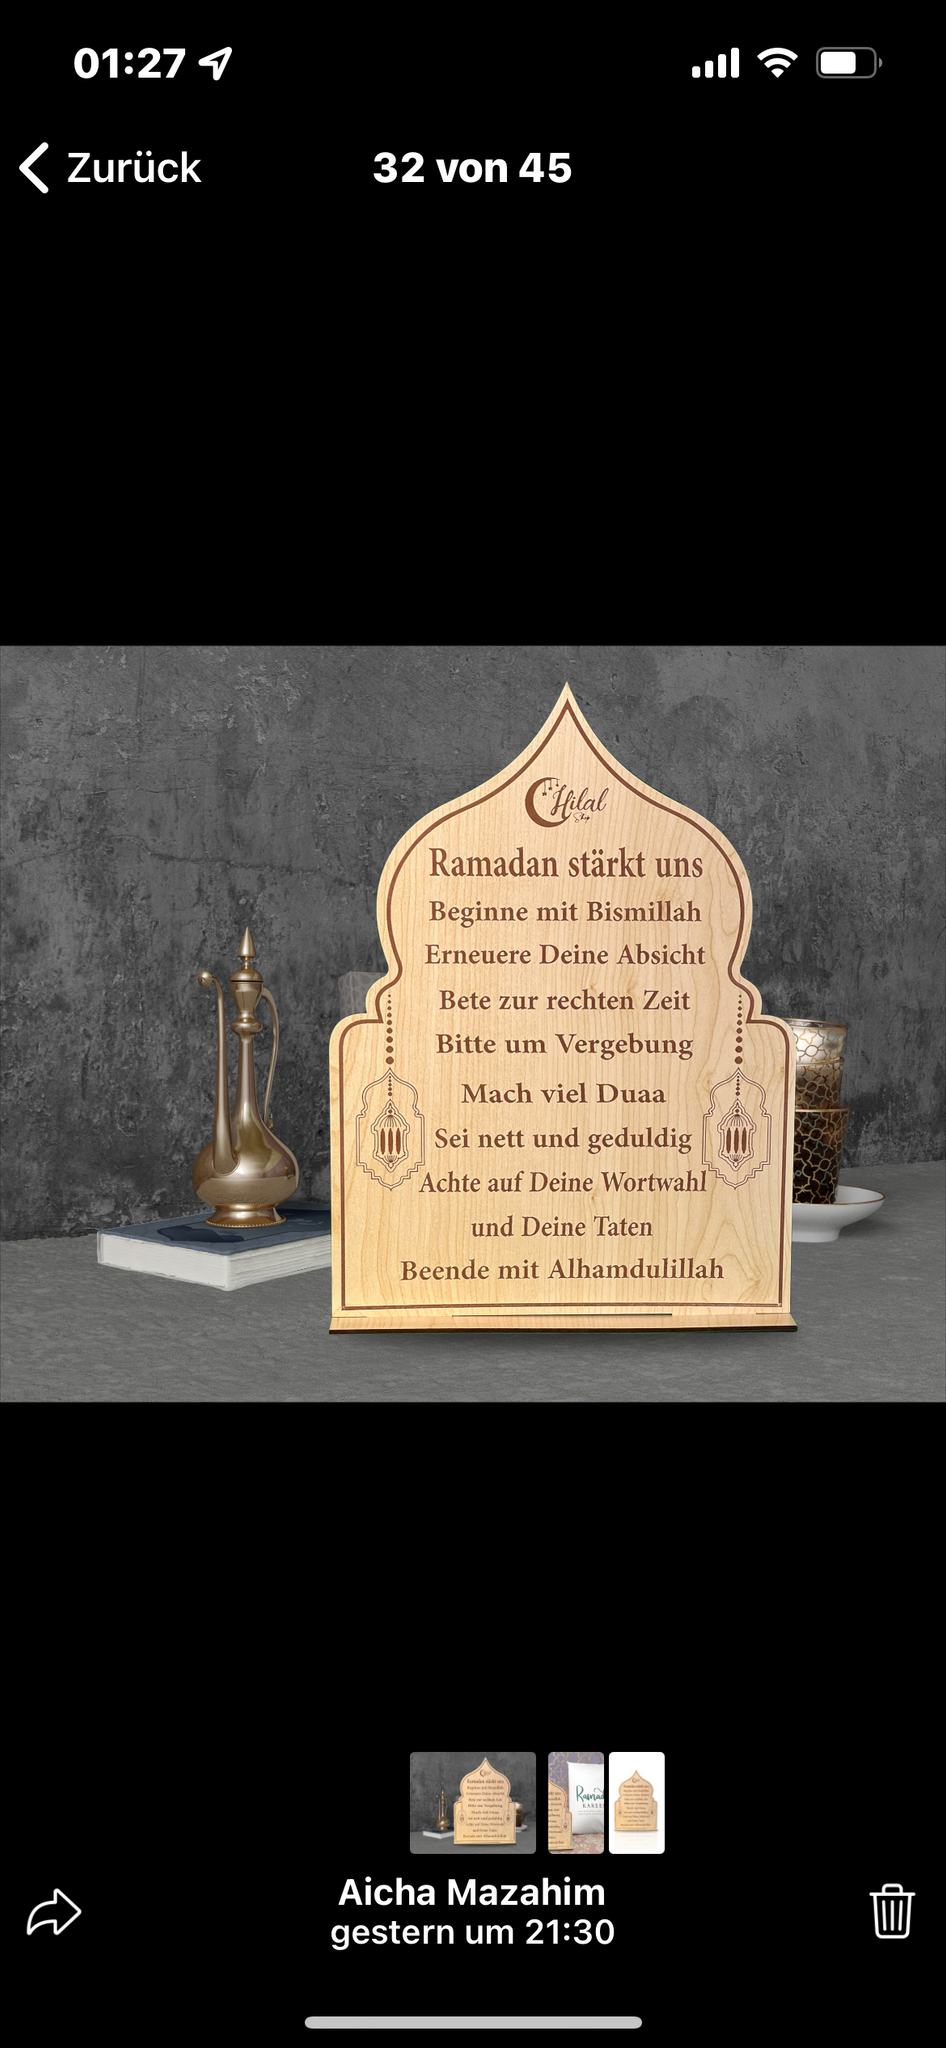 01:27
Zurück
32 von 45
Hilal
Shop
Ramadan stärkt uns
Beginne mit Bismillah
Erneuere Deine Absicht
Bete zur rechten Zeit
Bitte um Vergebung
Mach viel Duaa
Sei nett und geduldig
Achte auf Deine Wortwahl
und Deine Taten
Beende mit Alhamdulillah
Aicha Mazahim
gestern um 21:30